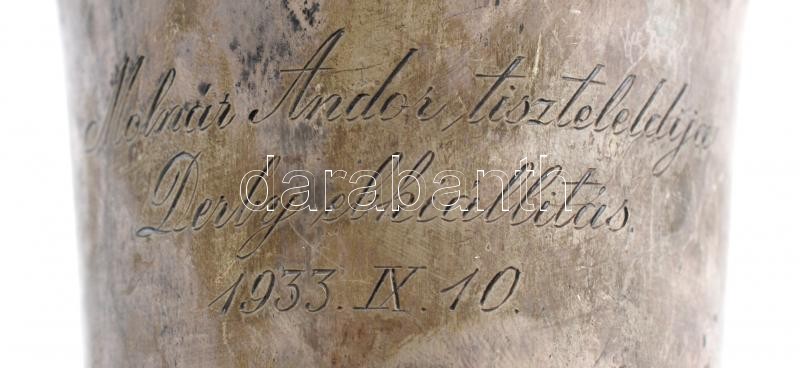 Molnár Andor tiszteletdija
Derby ebkiállitás.
1933. IX. 10.
darabanth